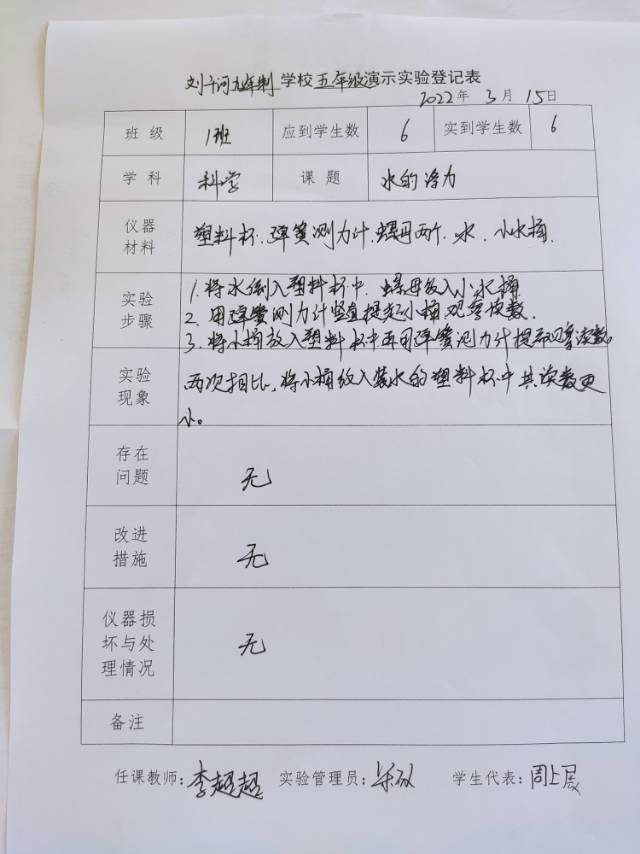 刘干河九年制学校五年级演示实验登记表
2022年3月15日
班级 1班 应到学生数 6 实到学生数 6
学科 科学 课题 水的浮力
仪器材料 塑料杯、弹簧测力计、螺母两个、水、小水桶
实验步骤 1.将水倒入塑料杯中,螺母放入小水桶
2.用弹簧测力计竖直提起小桶观察读数.
3.将小桶放入塑料杯中再用弹簧测力计提起观察读数。
实验现象 两次相比,将小桶放入装水的塑料杯中其读数更
小。
存在问题 无
改进措施 无
仪器损坏与处理情况 无
备注
任课教师:李超超 实验管理员: 学生代表:周上展